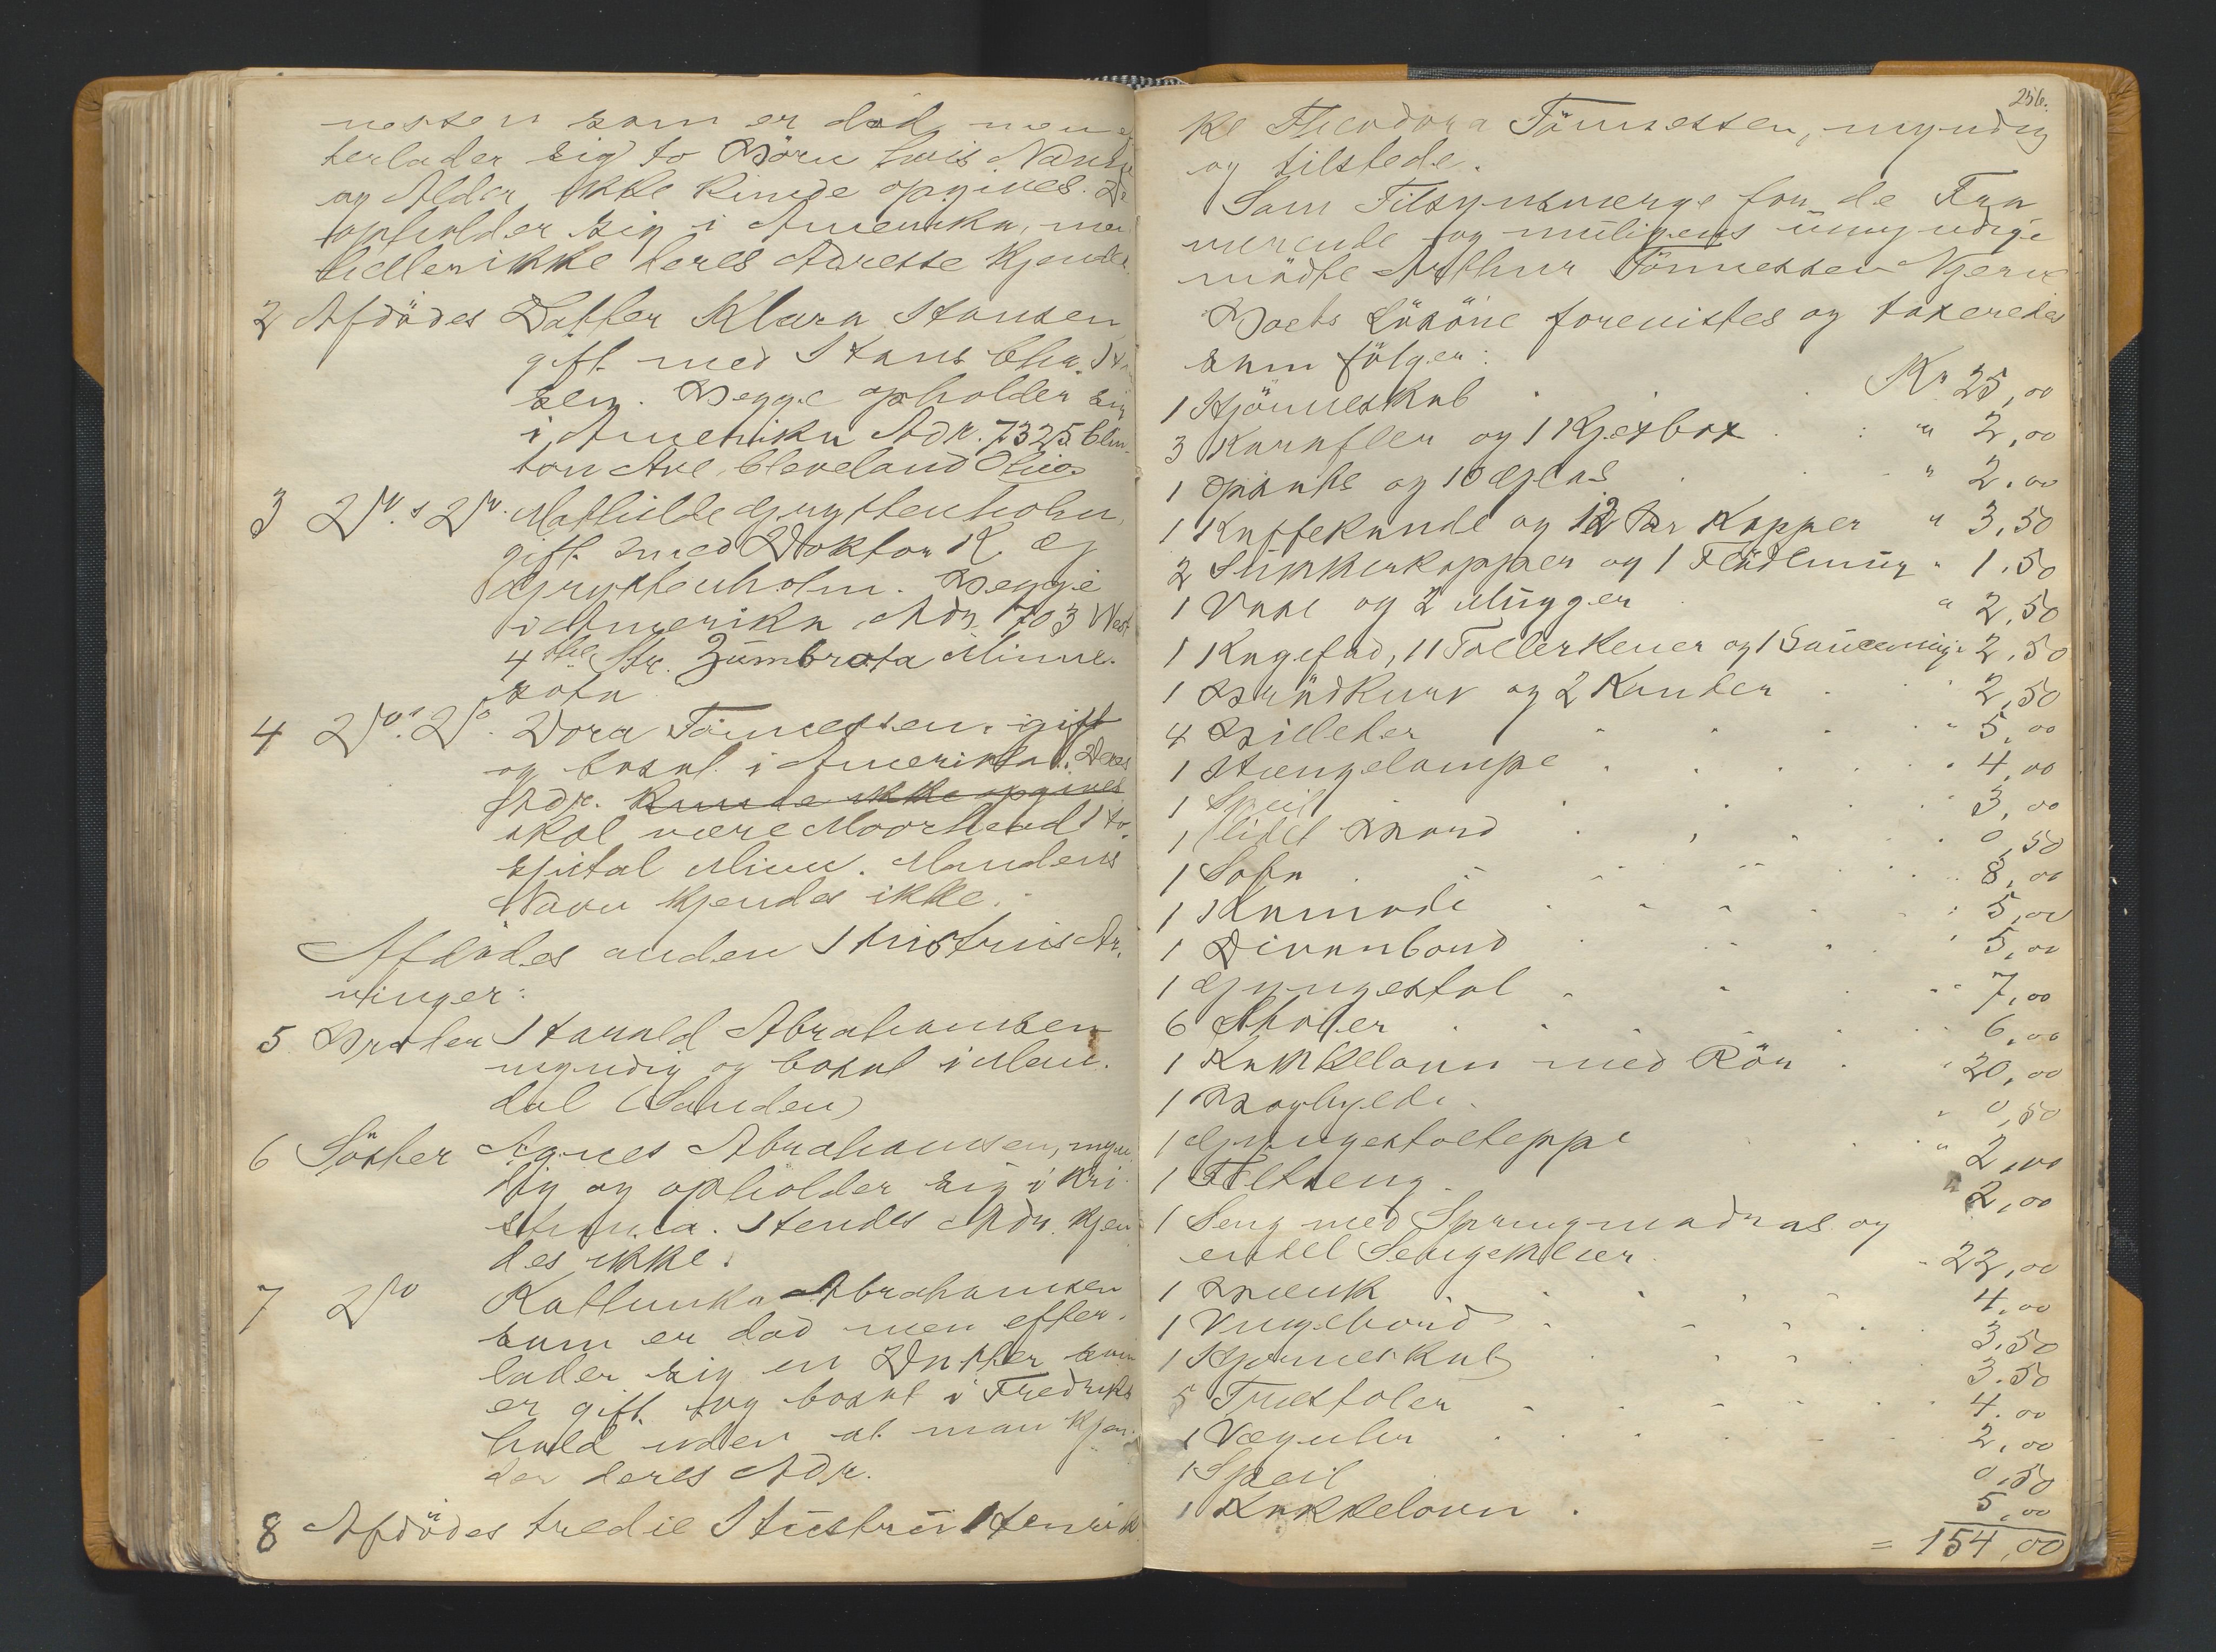 nessen som er død, men ef
terlader sig to Börn hvis Navne
og Alder ikke kunde opgives. De
opholder sig i Amerika, men
heller ikke deres Adresse kjendes.
2 Afdödes Datter Klara Hansen
gift med Hans Chr. Han
sen. Begge opholder sig
i Amerika Adr. 7325 Clin
ton Ave, Cleveland Ohio
3 Do. s Do. Mathilde Gryttenholm,
gift med Doktor K. G
Gryttenholm. Begge
i Amerika, Adr. 1703 West
4 the Str. Zumbrota Minne-
sota
4 Do.s Do. Dora Tönnessen, gift
og bosat i Amerika. Deres
Adr. kunde ikke opgives
skal være Moorhead Ho-
spital Minn. Mandens
Navn kjendes ikke.
Afdödes anden Hustrus Ar-
vinger:
5 Broder Harald Abrahamsen
myndig og bosat i Man-
dal (Sanden)
6 Söster Agnes Abrahamsen, myn-
dig og opholder sig i Kri-
stiania. Hendes Adr. kjen
des ikke.
7 Do Kathinka Abrahamsen
som er død men efter-
lader sig en Datter som
er gift og bosat i Fredriks
hald uden at man kjen-
der deres Adr.
8 Afdödes tredie Hustru Henrik
256.
ke Theodora Tönnessen, myndig
og tilstede.
Som Tilsynsværge for de Fra
værende og muligens umyndige
mödte Arthur Tönnessen Vjerv
Boets Lösöre forevistes og taxeredes
som fölger:
1 Hjörneskab Kr 25,00
3 Karafler og 1 Kjexbox " 2,00
1 Opsats og 10 Æglas " 2,00
1 Kaffekande og 12 Par Kopper " 3,50
2 Sukkerkopper og 1 Flödemug " 1,50
1 Vase og 2 Mugger " 2,50
1 Kagefad, 11 Tallerkener og 1 Saucemug " 2,50
1 Brödkurv og 2 Kander 2,50
4 Billeder " 5,00
1 Hængelampe " 4,00
1 Speil " 3,00
1 lidet Bord 0,50
1 Sofa 8,00
1 Kamode 5,00
1 Divanbord 5,00
1 Gyngestol " 7,00
6 Stoler 6,00
1 Kakkelovn med Rör " 20,00
1 Boghylde " 0,50
1 Gyngestolteppe " 2,00
1 Feltseng " 2,00
1 Seng med Springmadras og
endel Sengeklær " 22,00
1 Bænk 4,00
1 Vugebord 3,50
1 Hjørneskab 3.50
5 Træstoler 4.00
1 Væguhr 2,00
1 Speil 0,50
1 Kakkelovn 5,00
= 154,00